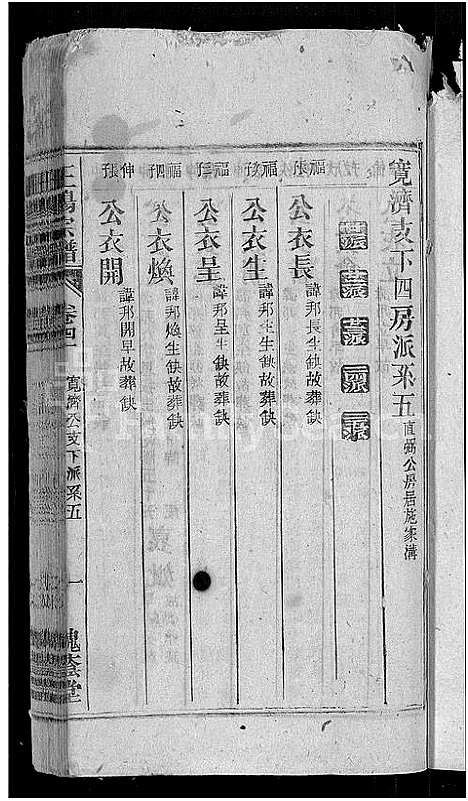 寬濟支下四房派系五 直弼公房居施家溝
福張
公衣長 諱邦長生缺故葬缺
福發
公衣生 諱邦生生缺故葬缺
福三
公衣呈 諱邦呈生缺故葬缺
福四
公衣煥 諱邦煥生缺故葬缺
伸張
公衣開 諱邦開早故葬缺
宗譜
卷四
寬濟公支下派系五
一
槐蔭堂